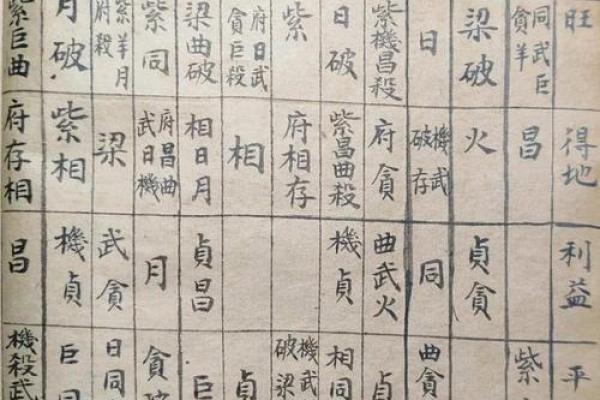 旺
得地
利益
平
同武巨
貪羊
昌
紫
梁破
火
貞貪
日
機武
破存
同
曲貪
紫機昌殺
府貪
曲武火
貞
日破
紫昌曲殺
機貞
相同
紫
府相存
機武
破梁
府日武
貪巨殺
相
貞
梁曲破
相日月
貞昌
巨
紫同
府昌曲
武日機
月
貪
紫羊月
府殺
梁
武貪
日同
月破
紫相
機貞
巨
紫巨曲
府存相
昌
機殺武